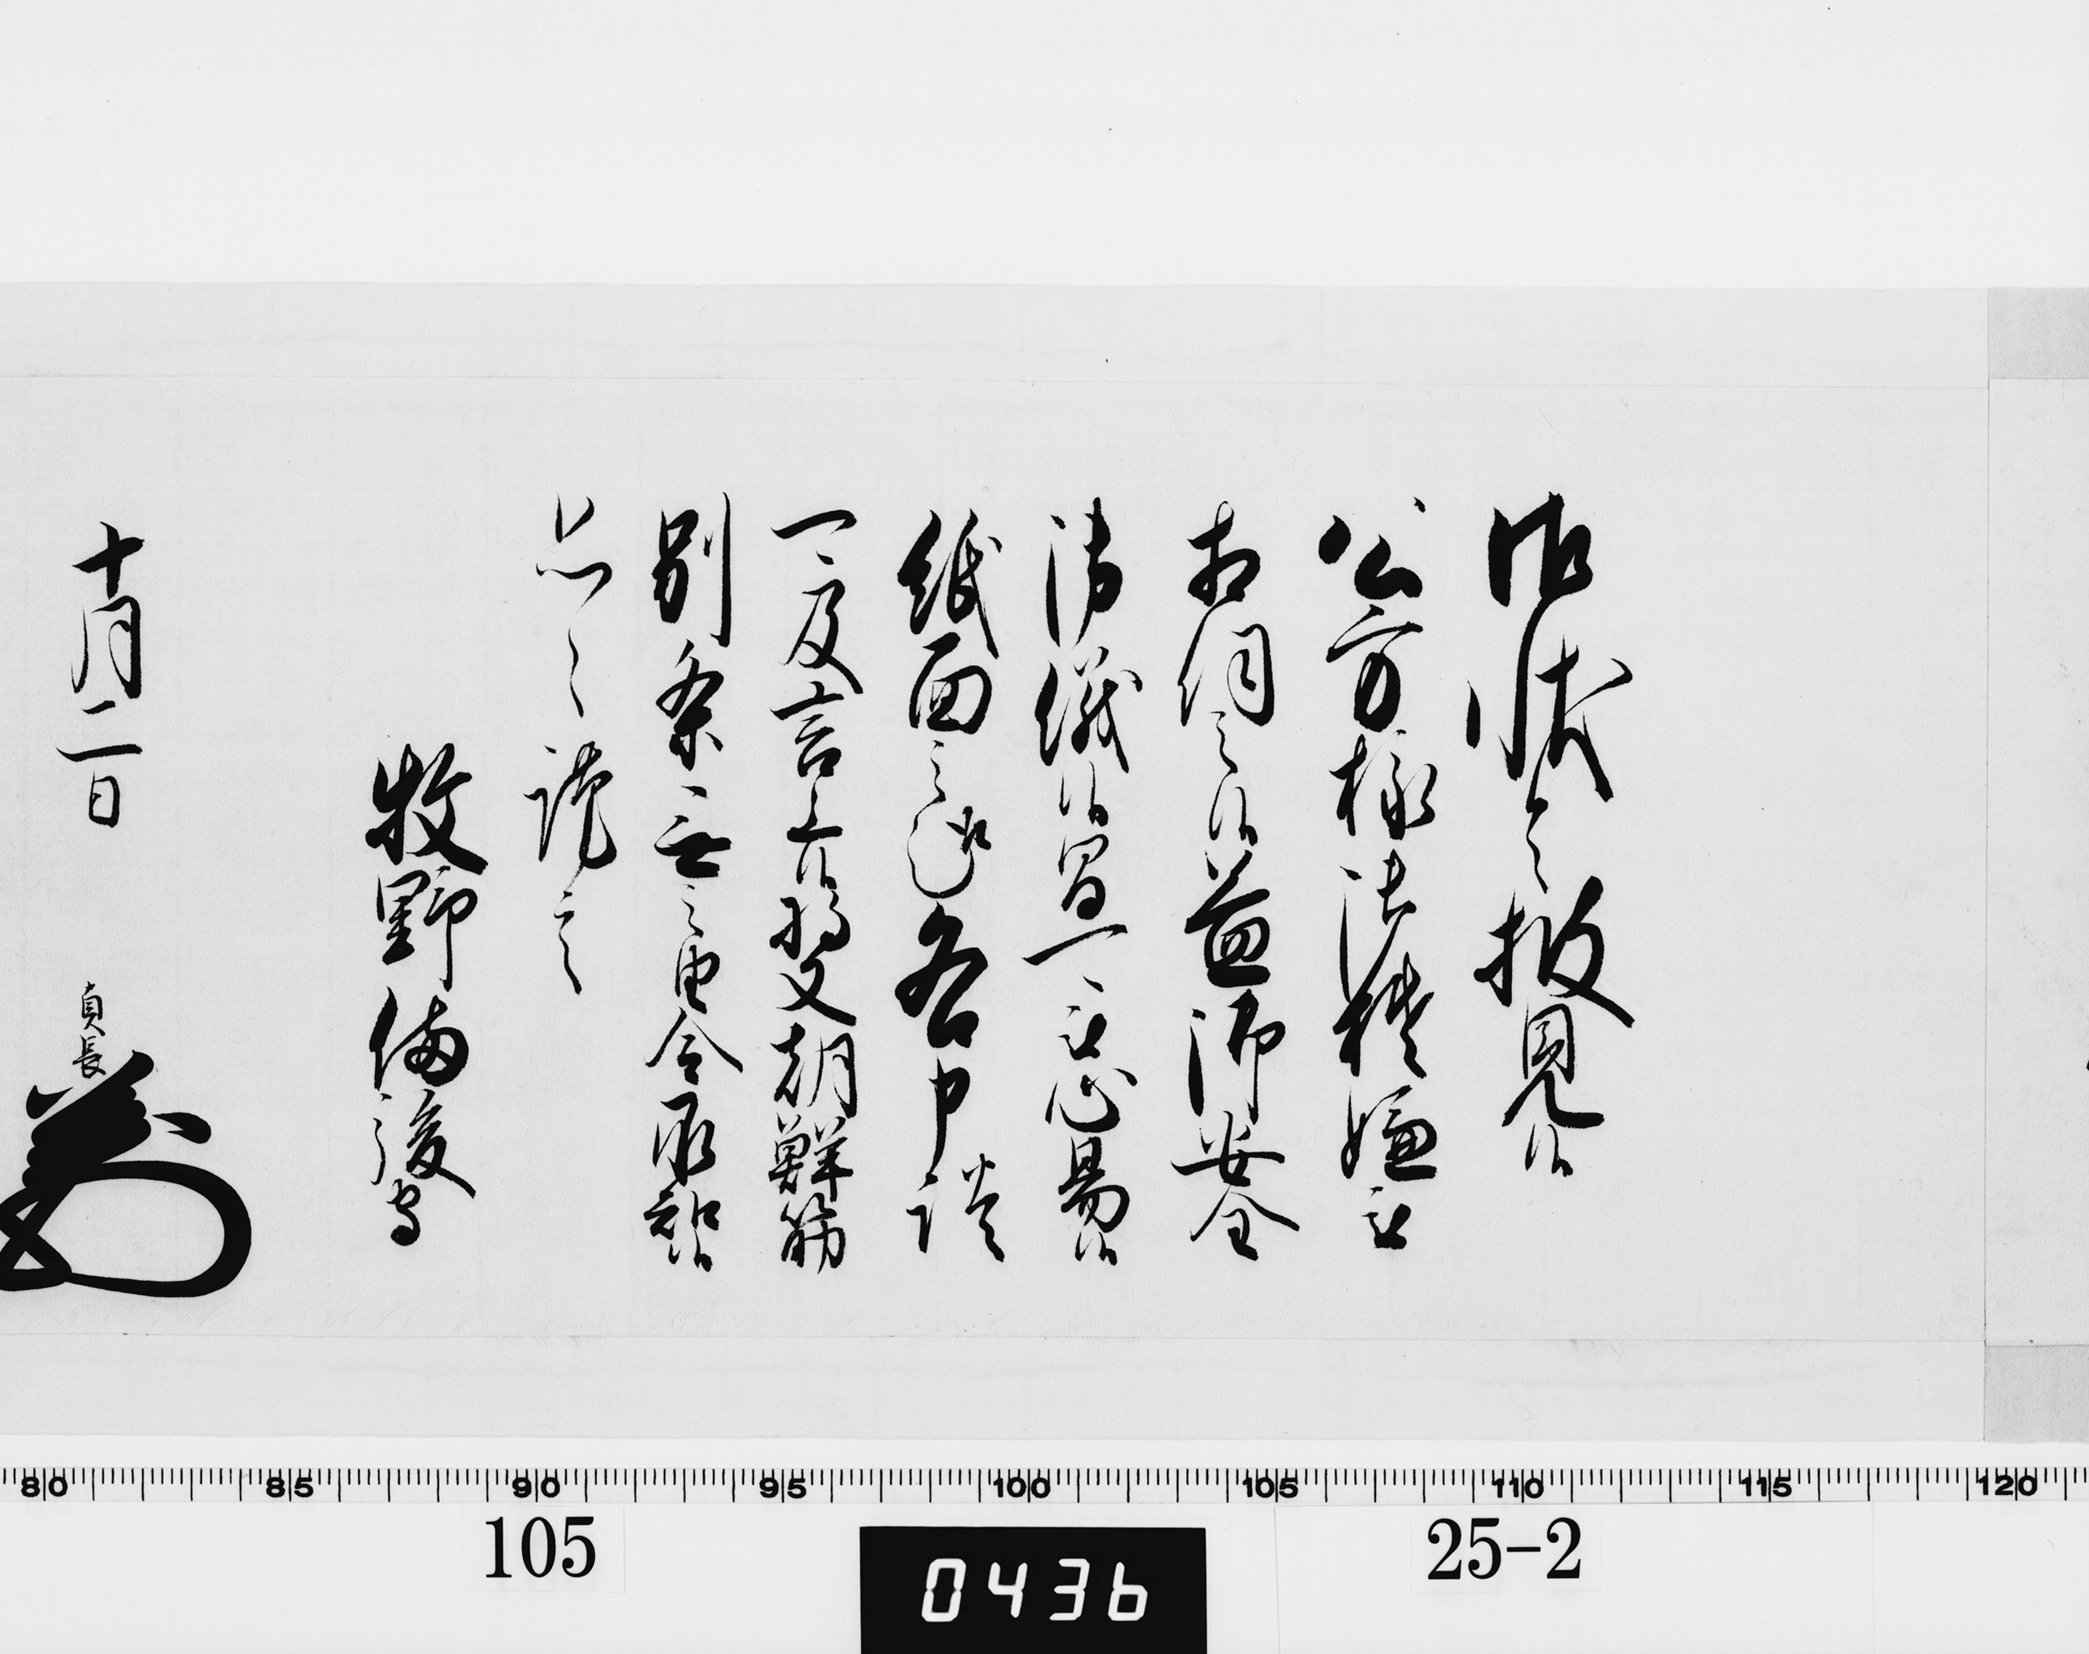 御状令披見候
公方様御機嫌之
相伺之候益御安全
御儀候間可心易候
紙面之趣各申談
一々及言上候将又朝鮮筋
別条無之由令承知候
恐々謹言
牧野備後守
十月二日
貞長
80 85 90 95 100 105 110 115 120
105
0436
25-2